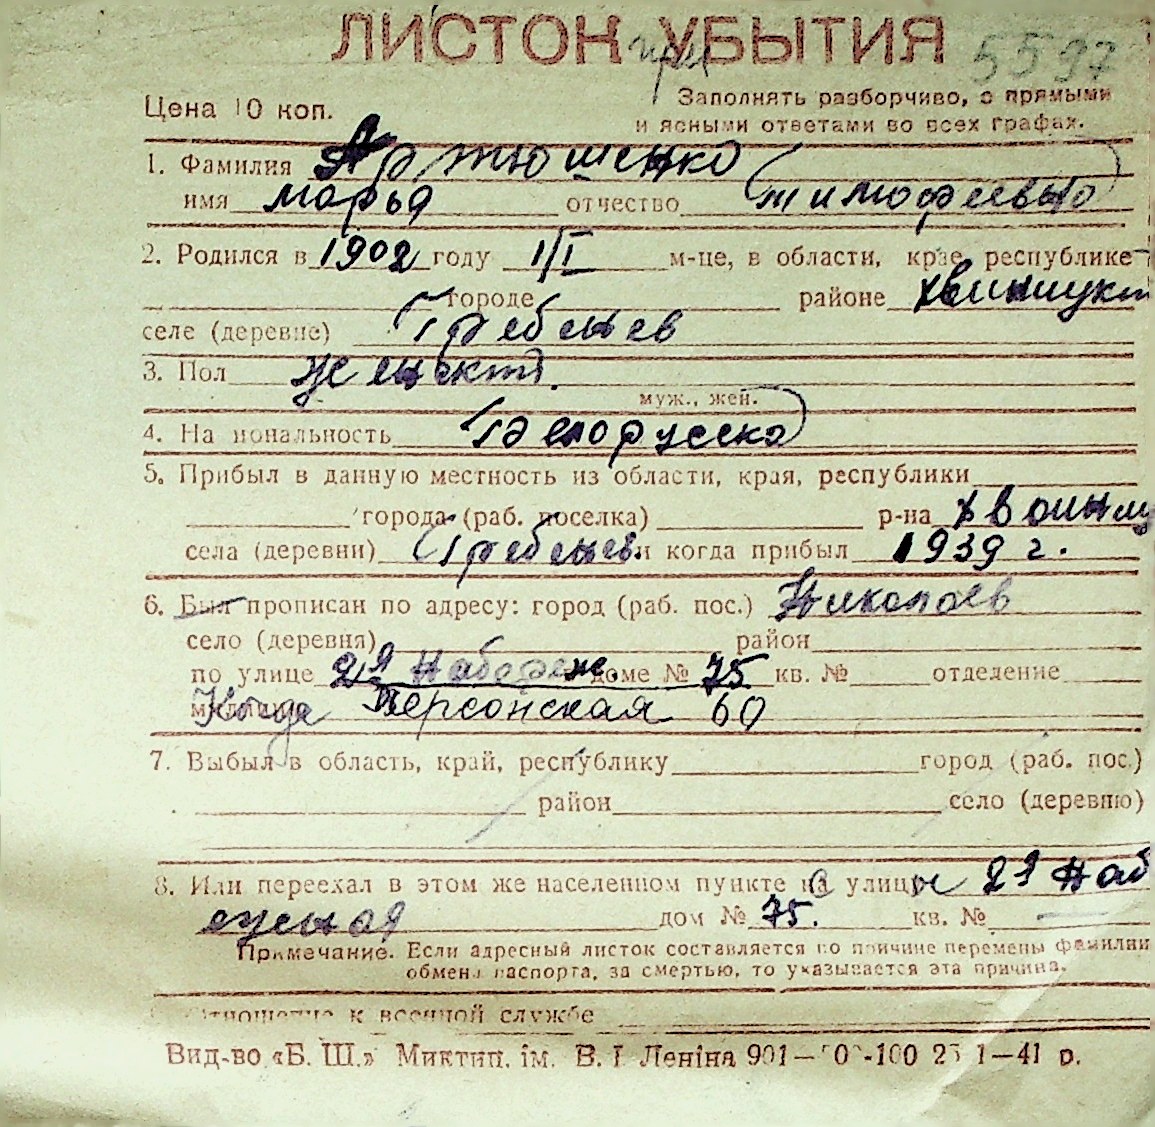 ЛИСТОН УБЫТИЯ
при 5597
Цена 10 коп.
Заполнять разборчиво, с прямыми
и ясными ответами во всех графах.
1. Фамилия Артюшенко
имя Марья отчество Тимофеевна
2. Родился в 1902 году 1/I м-це, в области, крае, республике
городе районе
селе (деревне) Гребенев
3. Пол женский.
муж., жен.
4. Национальность Белорусска
5. Прибыл в данную местность из области, края, республики
города (раб. поселка) р-на
села (деревни) Гребенев и когда прибыл 1939 г.
6. Был прописан по адресу: город (раб. пос.) Николаев
село (деревня) район
по улице 2я Набереж. доме № 75 кв. № отделение
милиции Херсонская 60
7. Выбыл в область, край, республику город (раб. пос.)
район село (деревню)
8. Или переехал в этом же населенном пункте с улицы 2я Наб
ежная дом № 75. кв. № —
Примечание. Если адресный листок составляется по причине перемены фамилии
обмена паспорта, за смертью, то указывается эта причина.
Отношение к военной службе
Вид-во «Б. Ш.» Миктип. ім. В. І Леніна 901— -100 25 1—41 р.